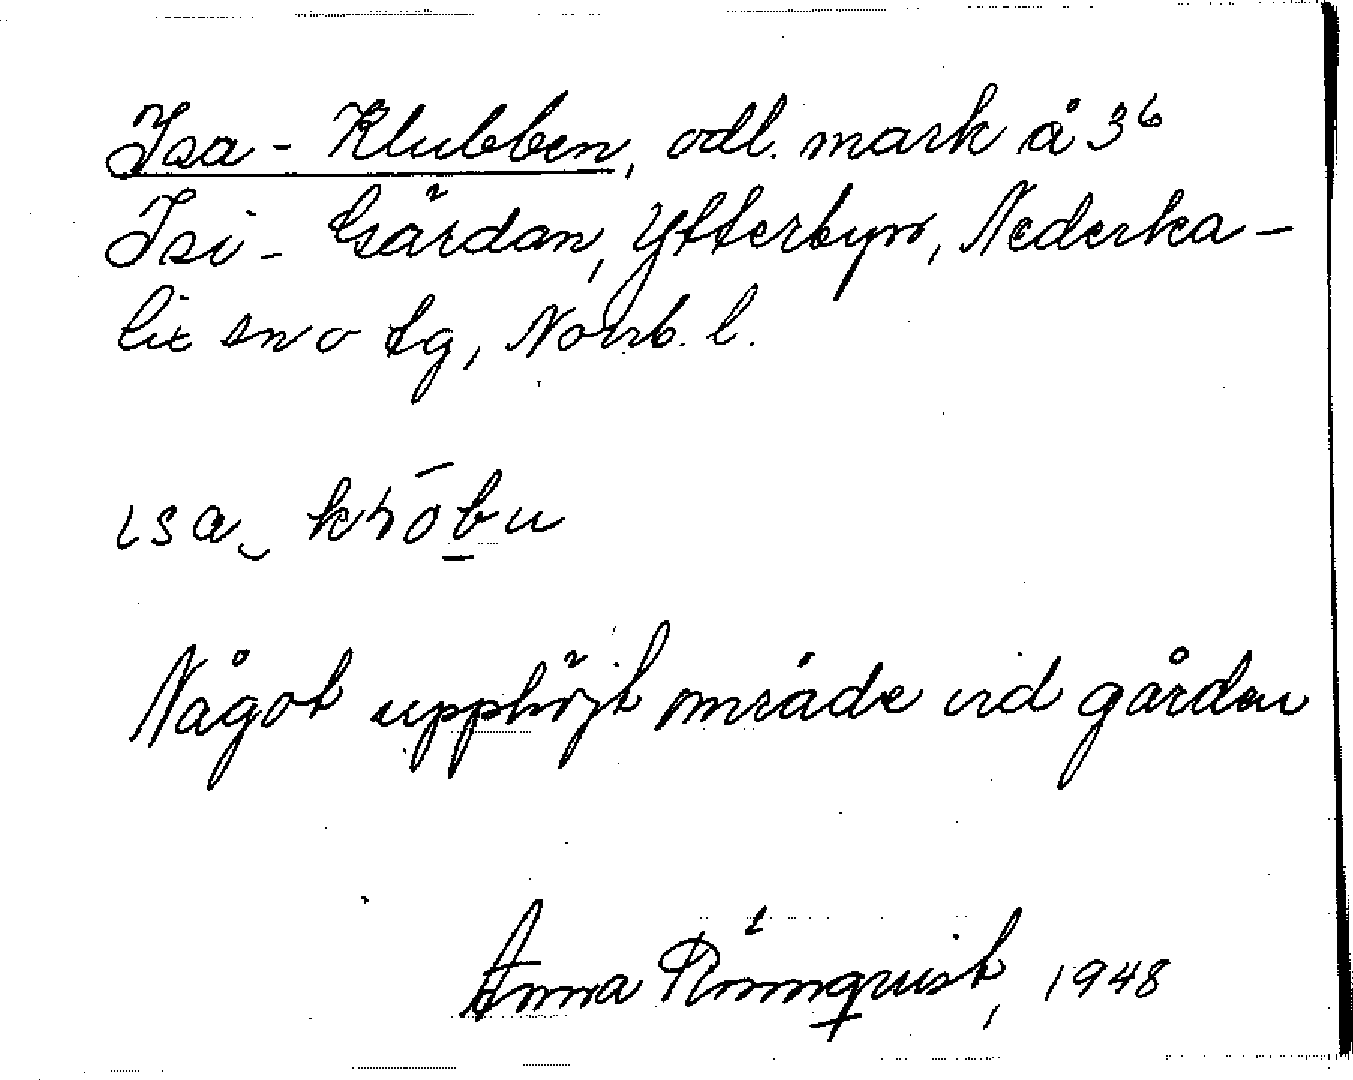 Isa - Klubben, odl. mark å 3⁶
Isi - Gärdan, Ytterbyn, Nederka-
lix sn o tg, Norrb. l.
ɩsa‿
Något upphöjt område vid gården
Anna Rönnquist, 1948